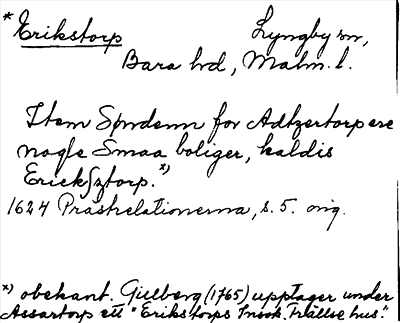 * Erikstorp Lyngby sn,
Bara hd, Malm. l.
Item Syndenn for Adtzertorp ere
nogle Smaa boliger, kaldis
Ericksztorp. x)
1624 Prästrelationerna, s. 5. orig.
x) obekant. Gillberg (1765) upptager under
Assartorp ett "Erikstorps Hus."